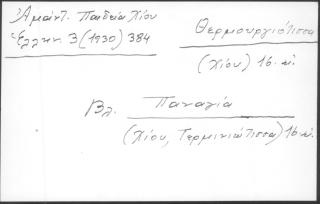 Ἀμάντ. Παιδεία Χίου
Ἑλλην. 3 (1930) 384
Θερμουργιότισσα
(Χίου) 16. αἰ.
Βλ. Παναγία
(Χίου, Τερμινιώτισσα) 16 αἰ.